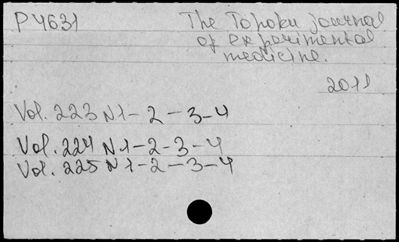 P4631
The Tohoku journal
of experimental
medicine.
2011
Vol. 223 N1-2-3-4
Vol. 224 N1-2-3-4
Vol. 225 N1-2-3-4